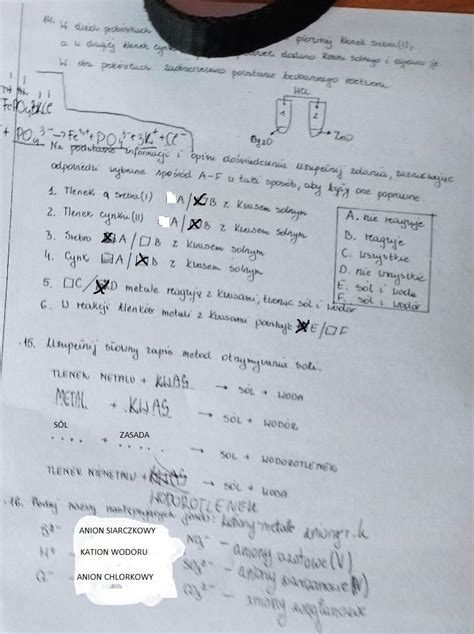 14. W dwóch probówkach pierwszej tlenek srebra(I),
a w drugiej tlenek cynku dodano kwas solny i ogrzano je.
W obu probówkach zaobserwowano powstanie bezbarwnego roztworu.
HCl
1 2
Ag₂O ZnO
+ PO₄³⁻ → Fe³⁺ + PO₄³⁻ + 3K⁺ + Cl⁻
Na podstawie informacji i opisu doświadczenia uzupełnij zdania, zaznaczając
odpowiedzi wybrane spośród A-F w taki sposób, aby były one poprawne.
1. Tlenek srebra(I) A / B z kwasem solnym
2. Tlenek cynku(II) A / B z kwasem solnym
3. Srebro A / B z kwasem solnym
4. Cynk A / B z kwasem solnym
5. C / D metale reagują z kwasami, tworząc sól i wodór
6. W reakcji tlenków metali z kwasami powstaje E / F
A. nie reaguje
B. reaguje
C. wszystkie
D. nie wszystkie
E. sól i woda
F. sól i wodór
15. Uzupełnij słowny zapis metod otrzymywania soli.
TLENEK METALU + KWAS → SÓL + WODA
METAL + KWAS → SÓL + WODÓR
SÓL + ZASADA → SÓL + WODOROTLENEK
TLENEK NIEMETALU + KWAS → SÓL + WODA
WODOROTLENEK
16. Podaj nazwy następujących jonów: kationy-metale aniony r. k
S²⁻ ANION SIARCZKOWY NO₃⁻ - aniony azotowe (V)
H⁺ KATION WODORU - aniony siarczanowe
Cl⁻ ANION CHLORKOWY CO₃²⁻ - aniony węglanowe